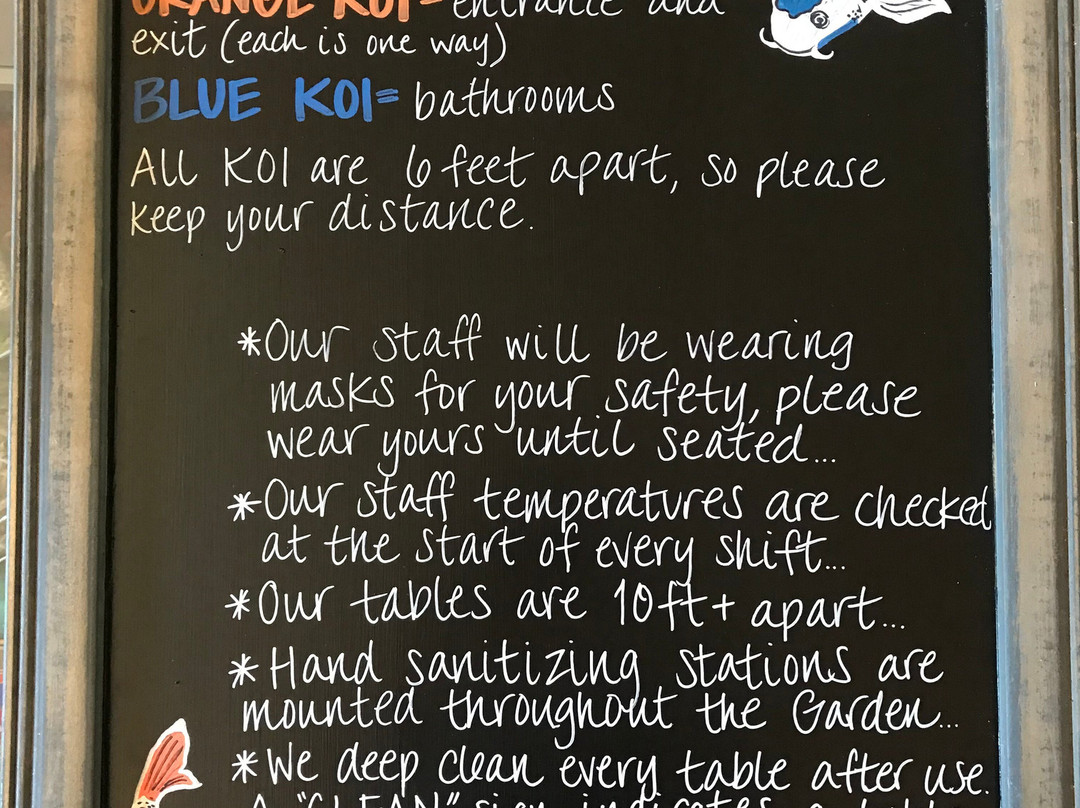 ORANGE KOI= entrance and
exit (each is one way)
BLUE KOI= bathrooms
All KOI are 6 feet apart, so please
keep your distance.
*Our staff will be wearing
masks for your safety, please
wear yours until seated...
*Our staff temperatures are checked
at the start of every shift...
*Our tables are 10ft+ apart...
*Hand sanitizing stations are
mounted throughout the Garden...
*We deep clean every table after use.
A "CLEAN" sign indicates